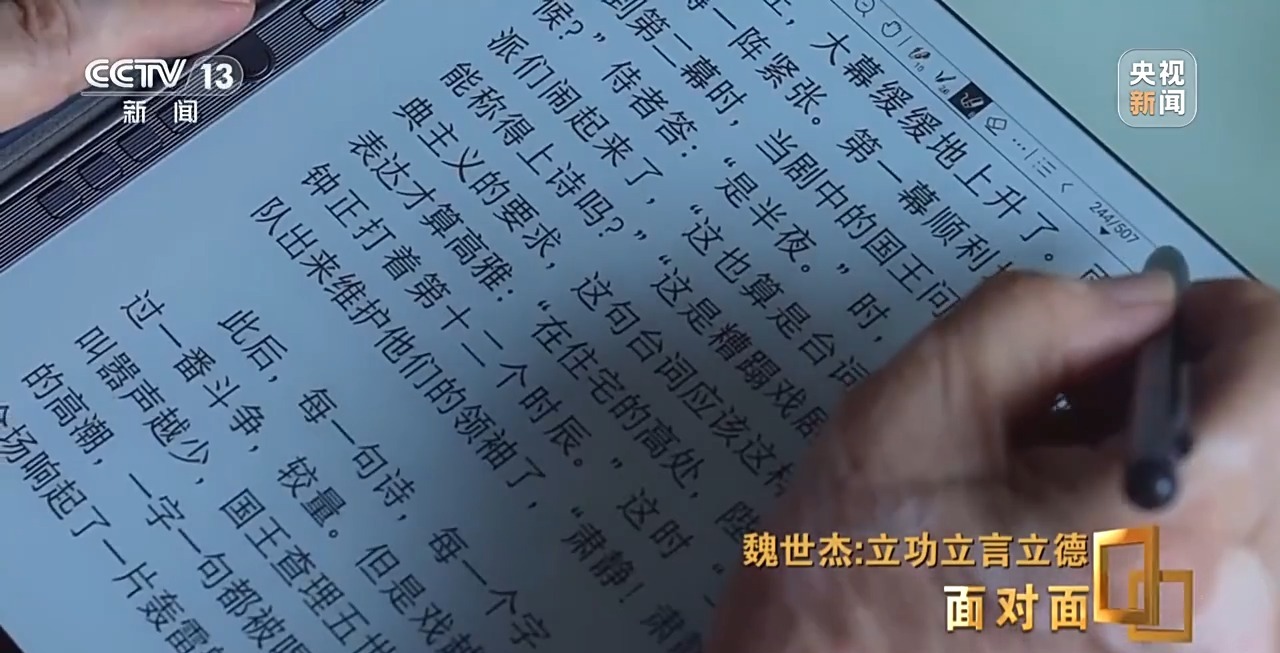 CCTV 13
新闻
央视
新闻
244/507
大幕缓缓地上升了。
一阵紧张。第一幕顺利
到第二幕时，当剧中的国王问
候？”侍者答：“是半夜。”时，
派们闹起来了，“这也算是台词
能称得上诗吗？”“这是糟蹋戏剧
典主义的要求，这句台词应该这样
表达才算高雅：“在住宅的高处，陛
钟正打着第十二个时辰。”这时“
队出来维护他们的领袖了，“肃静！肃静
此后，每一句诗，每一个字
过一番斗争，较量。但是戏越
叫嚣声越少，国王查理五世
的高潮，一字一句都被
全场响起了一片轰雷
魏世杰:立功立言立德
面对面